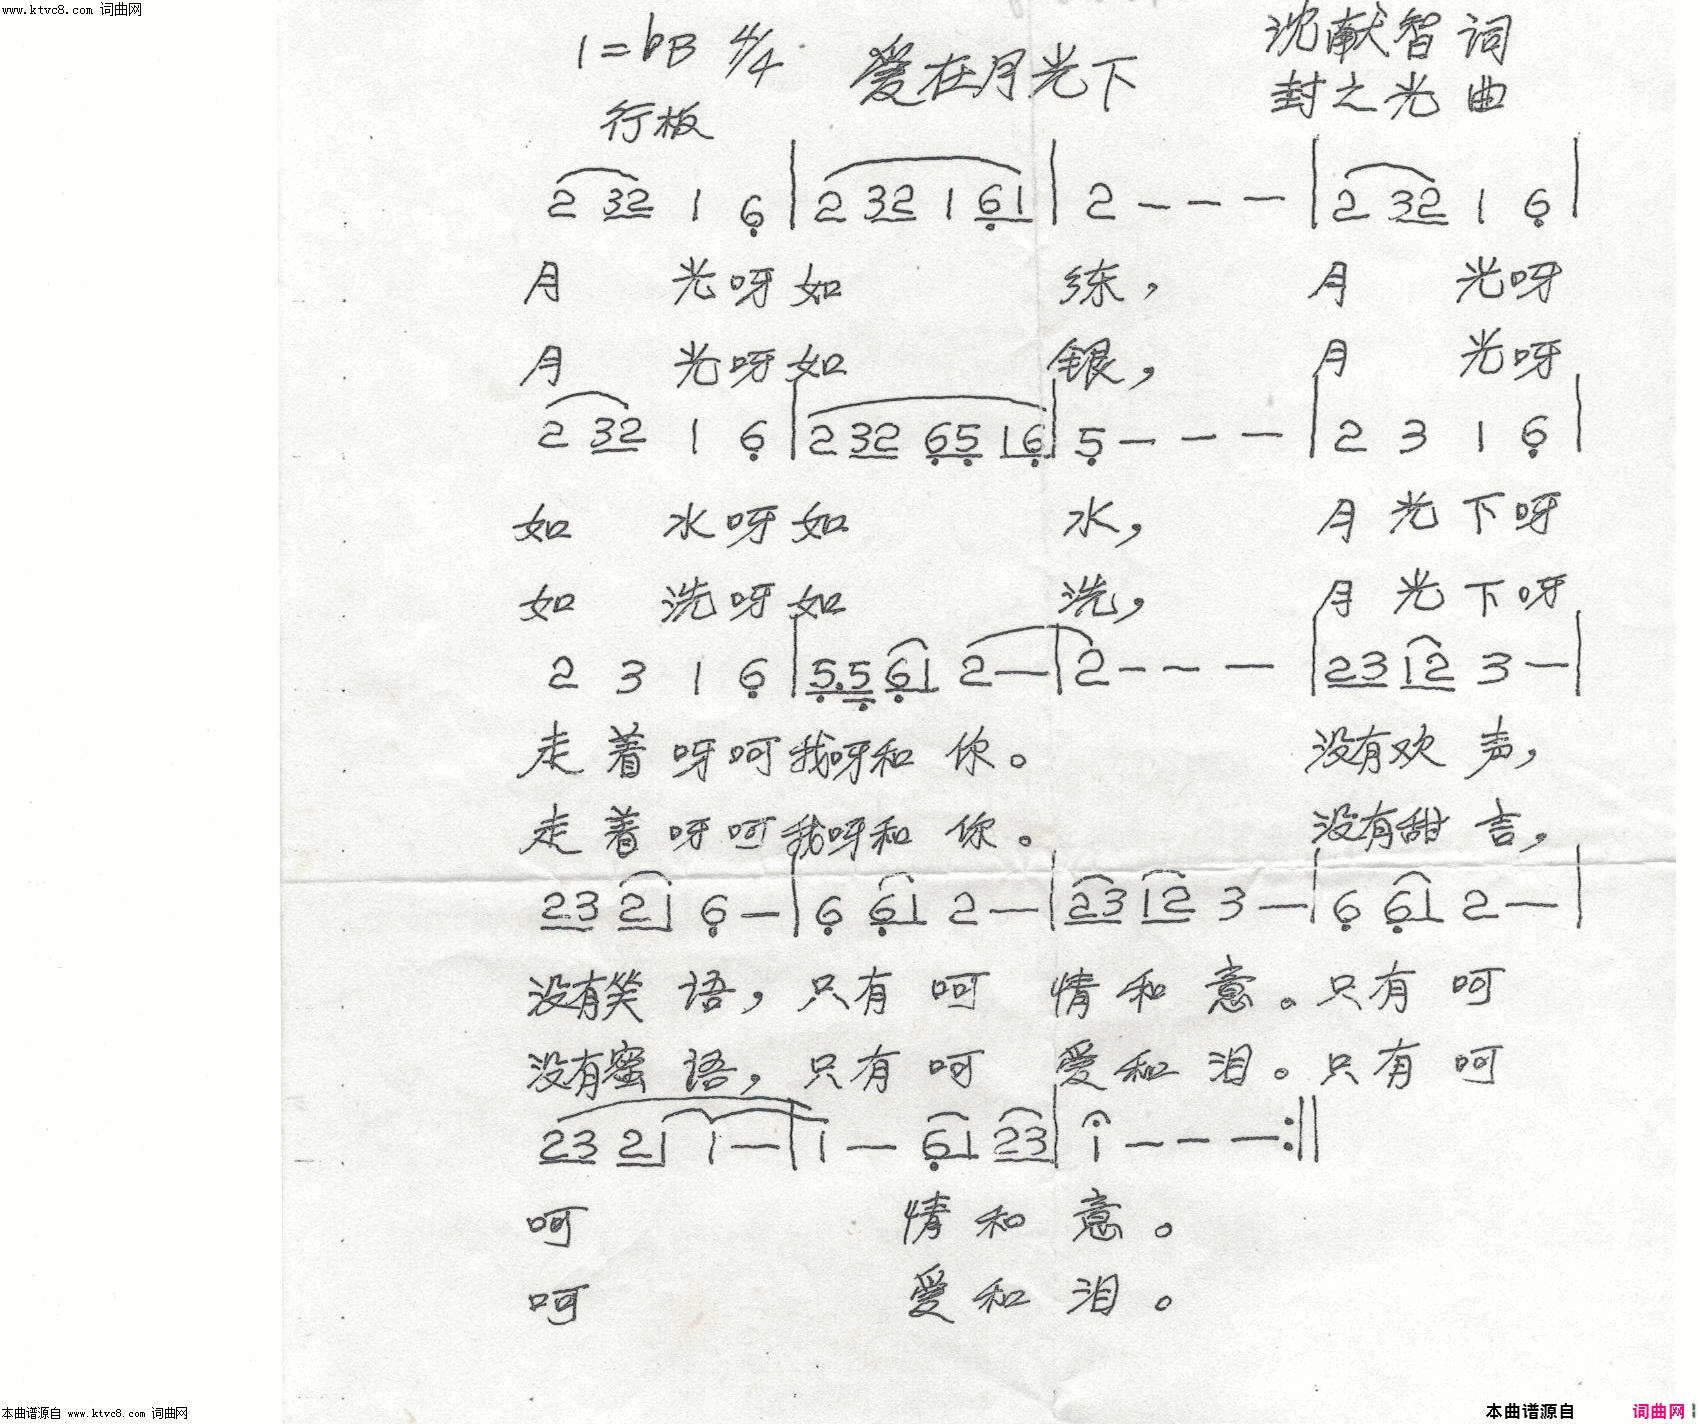 www.ktvc8.com 词曲网
1=bB 4/4 爱在月光下 沈献智 词
行板 封之光 曲
2 32 1 6 | 2 32 1 61 | 2 - - - | 2 32 1 6 |
月 光呀如 练， 月 光呀
月 光呀如 银， 月 光呀
2 32 1 6 | 2 32 65 16 | 5 - - - | 2 3 1 6 |
如 水呀如 水， 月光下呀
如 洗呀如 洗， 月光下呀
2 3 1 6 | 5.5 61 2 - | 2 - - - | 23 12 3 - |
走着呀呵我呀和你。 没有欢声，
走着呀呵我呀和你。 没有甜言，
23 21 6 - | 6 61 2 - | 23 12 3 - | 6 61 2 - |
没有笑语，只有呵 情和意。只有呵
没有蜜语，只有呵 爱和泪。只有呵
23 21 1 - | 1 - 61 23 | 1 - - - :||
呵 情和意。
呵 爱和泪。
本曲谱源自 www.ktvc8.com 词曲网
本曲谱源自 词曲网